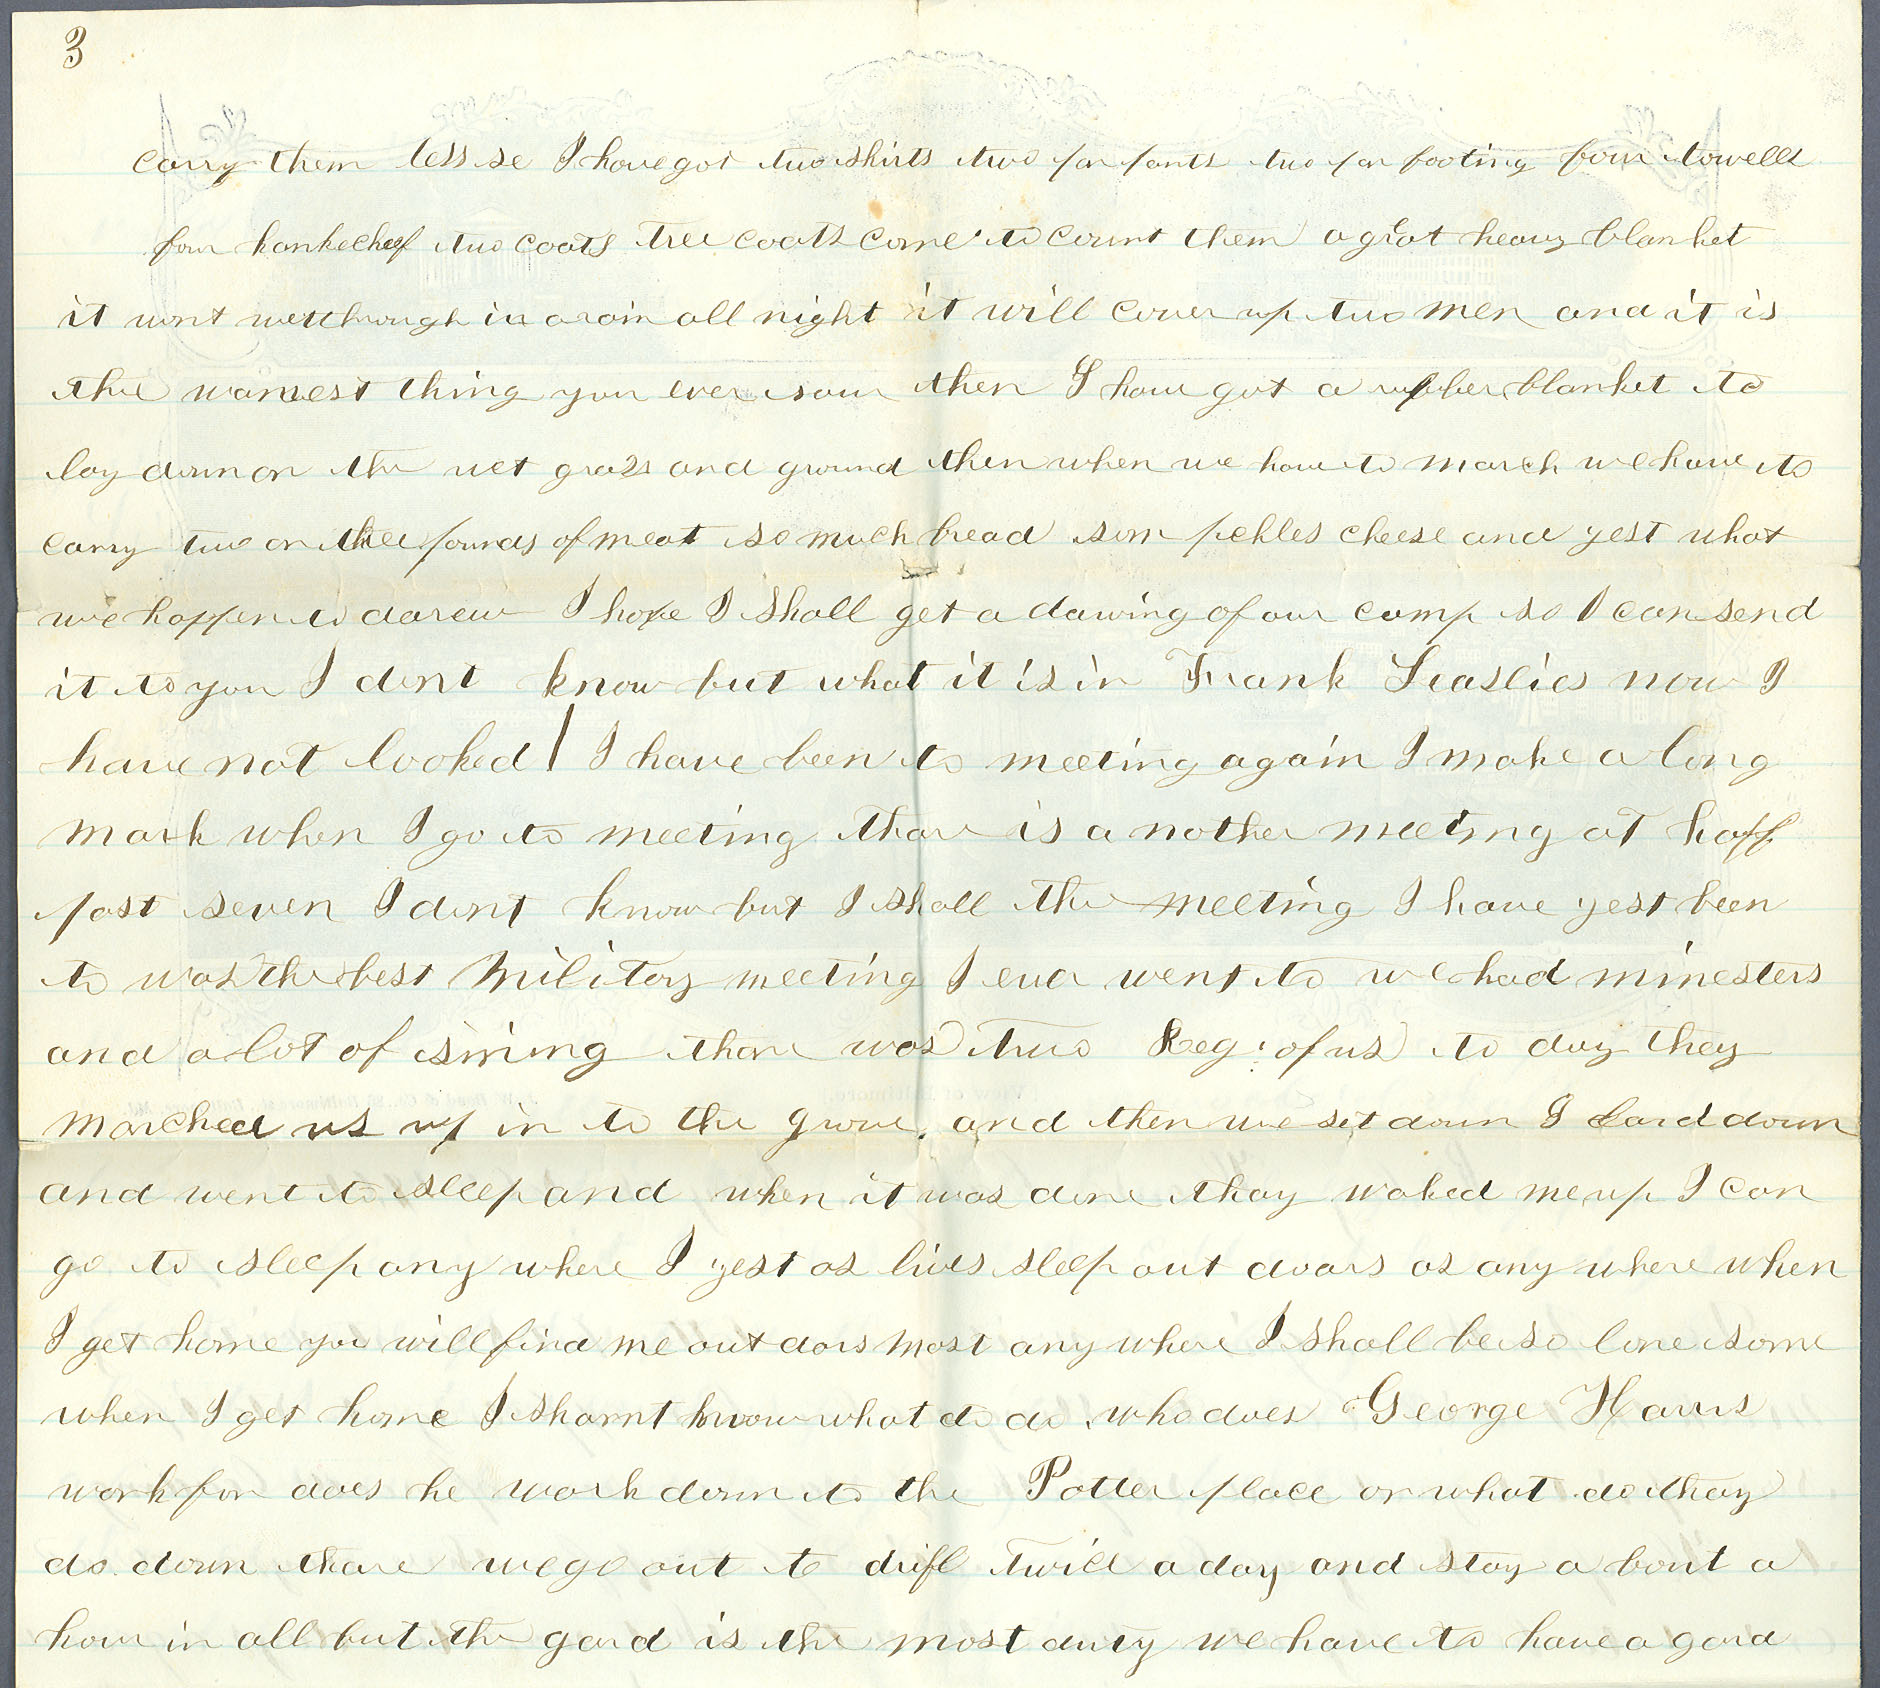 3
carry them less se I have got two shirts two par pants two par footing four towells
four hankechegf two coats tree coats come to count them a great heavy blanket
it wont wett through in a rain all night it will cover up two men and it is
the warmest thing you ever saw then I have got a rubber blanket to
lay down on the wet grass and ground then when we have to march we have to
carry two or three pounds of meat so much bread som pekles cheese and yest what
we happen to darew I hope I shall get a dawing of our camp so I can send
it to you I dont know but what it is in Frank Leaslies now I
have not looked | I have been to meeting again I make a long
mark when I go to meeting thare is a nother meeting at haff
past seven I dont know but I shall the meeting I have yest been
to was the best Military meeting I ever went to we had minesters
and a lot of sining thare was two Reg. of us to day they
marched us up in to the grove. and then we set down I laid down
and went to sleep and when it was done thay waked me up I can
go to sleep any where I yest as lives sleep out doars as any where when
I get home you will find me out dors most any where I shall be so lone some
when I get home I sharnt know what to do who does George Harris
work for does he work down to the Potter place or what do thay
do down thare we go out to drill twice a day and stay a bout a
hour in all but the gard is the most duty we have to have a gard
View of Baltimore.